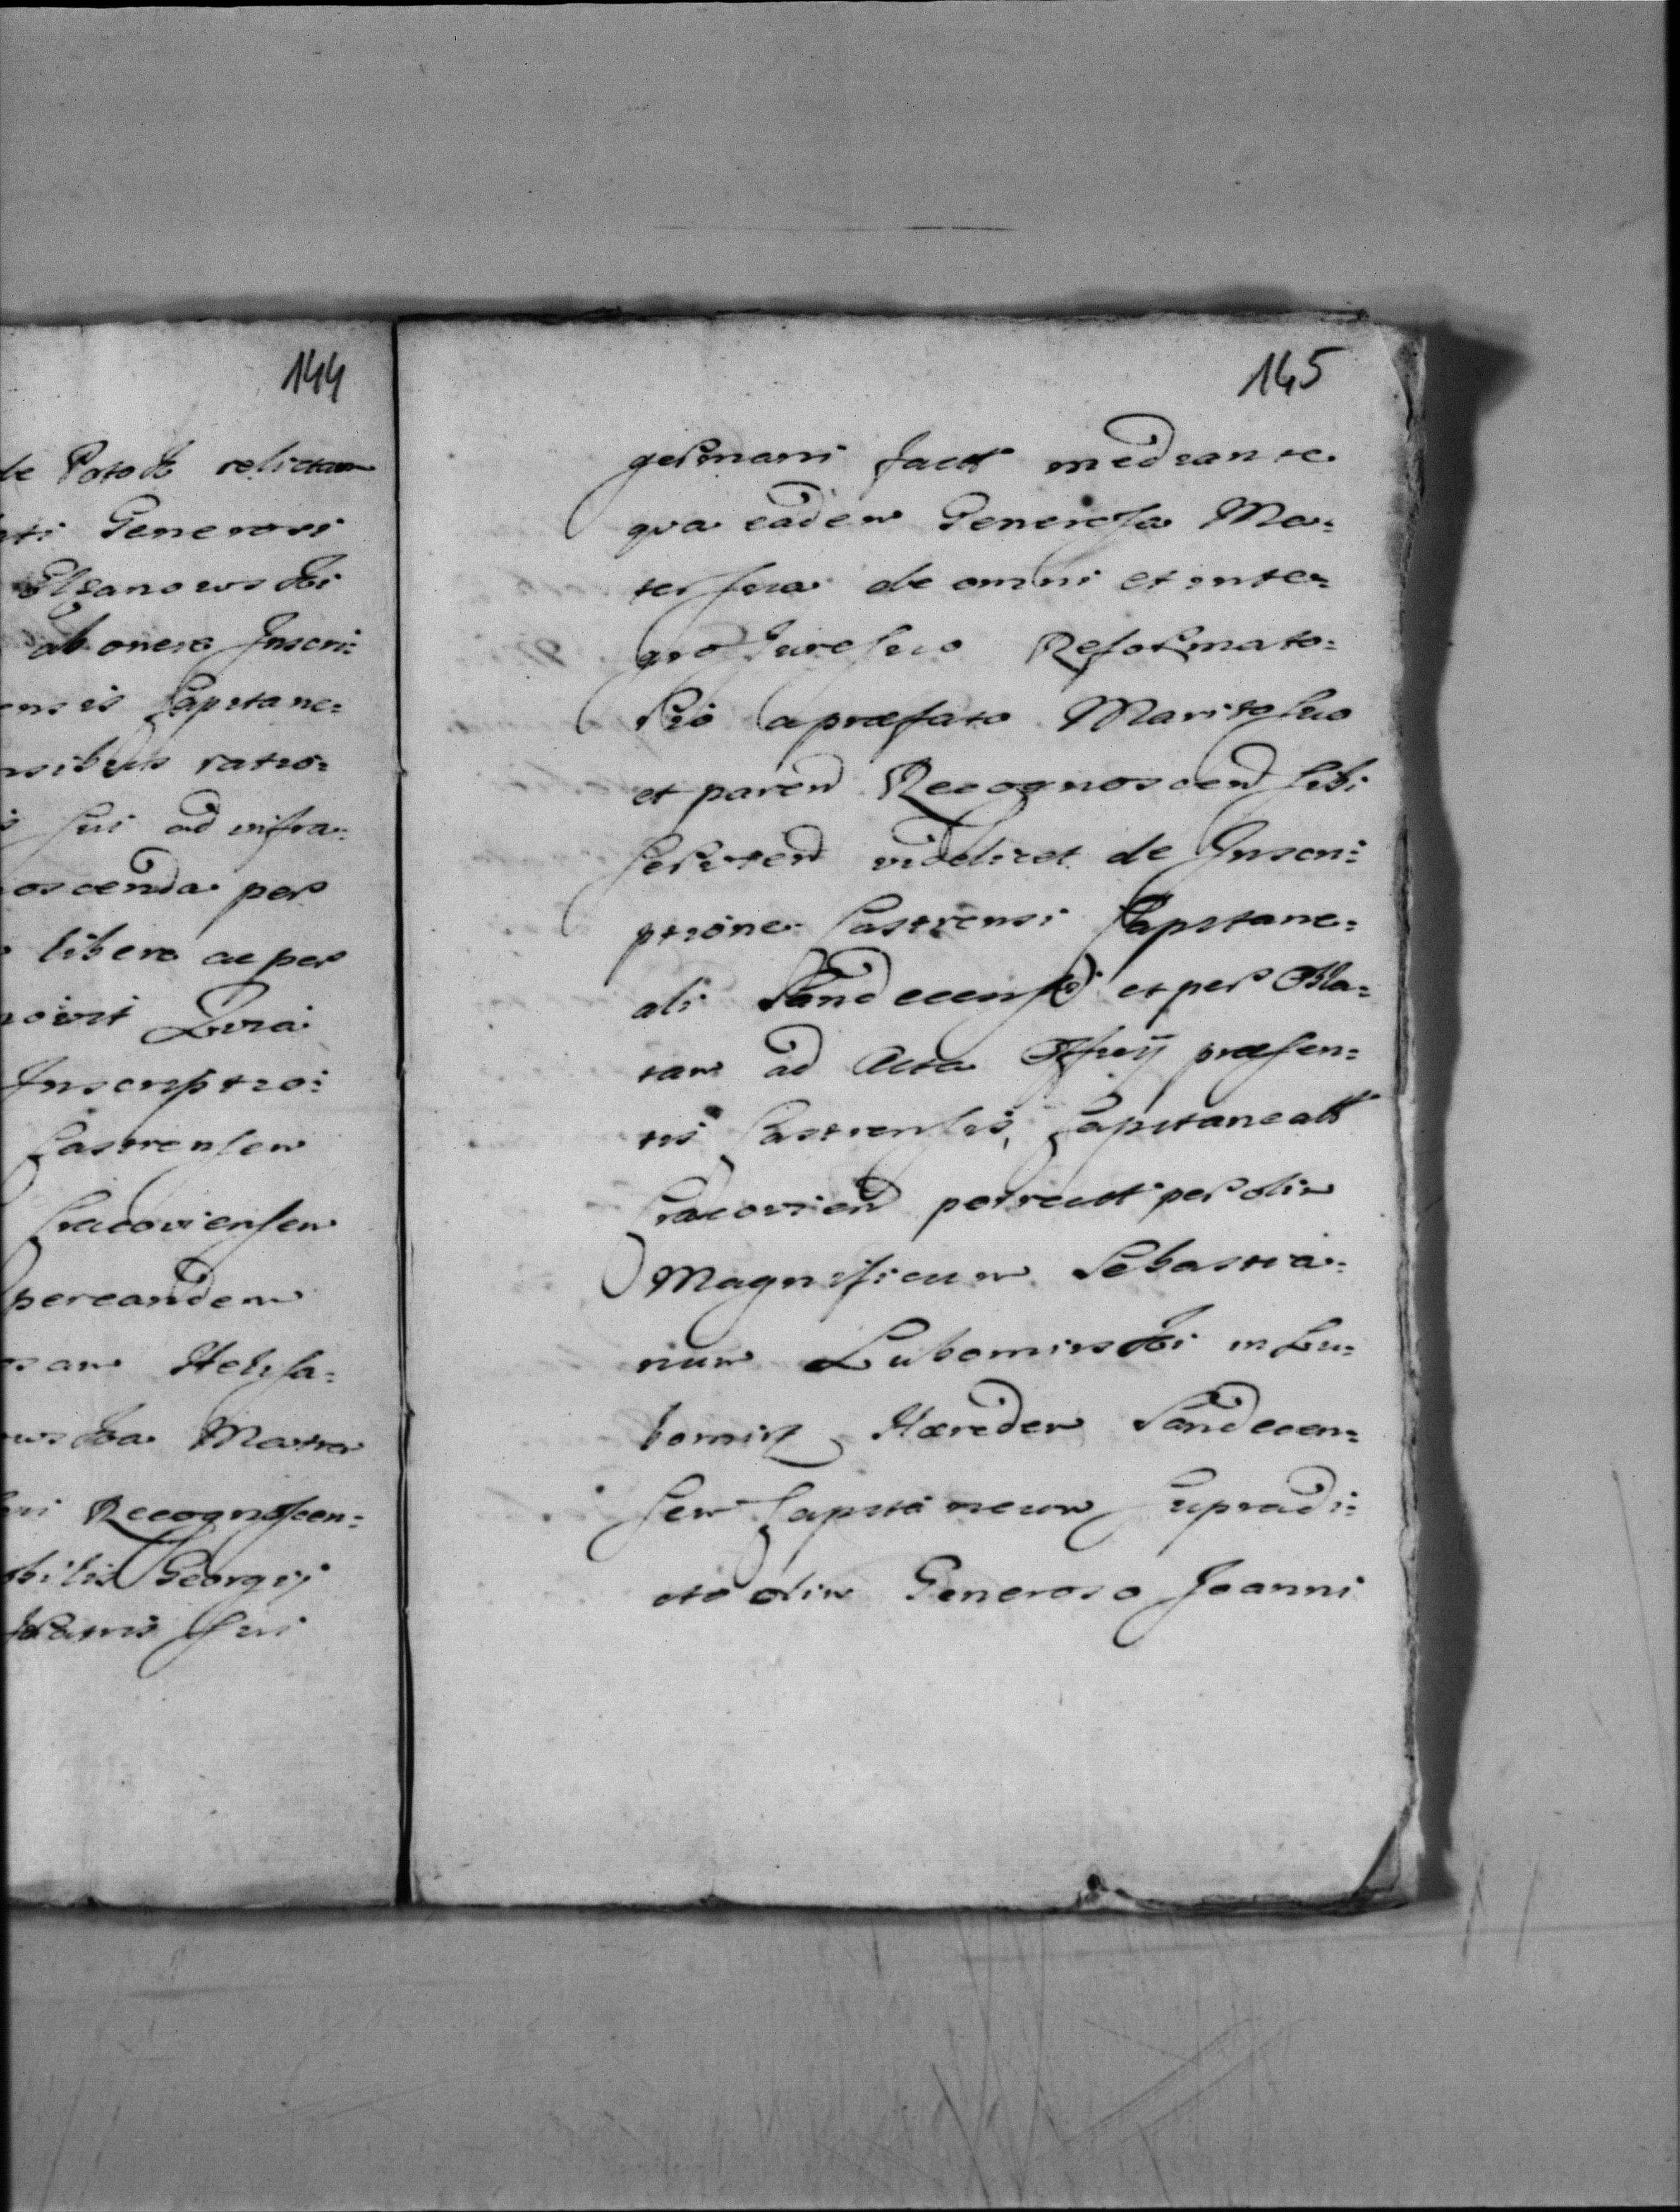 144
de Potok relictam
ti Generosi
Elzanowski
ab onere Inscri=
ensis Capitane=
nsibus ratio=
sui ad infra=
oscenda per
libere ac per
novit Quia
Inscriptio=
Castrensem
Cracoviensem
per eandem
sam Helisa=
wska Matrem
sui Recognoscen=
bilis Georgij
Fratris sui
145
germani fact mediante
qua eadem Generosa Ma=
ter sua de omni et inte=
gro Jure suo Reformato=
rio a præfato Marito suo
et paren Recognoscen sibi
servien videlicet de Inscri=
ptione Castrensi Capitane=
ali Sandecensi et per Obla=
tam ad Acta Officij præsen=
tis Castrensis, Capitaneall
Cracovien porrect per olim
Magnificum Sebastia=
num Lubomirski in Lu=
bomirz Hæredem Sandecen=
sem Capitaneum supradi=
cto olim Generoso Joanni